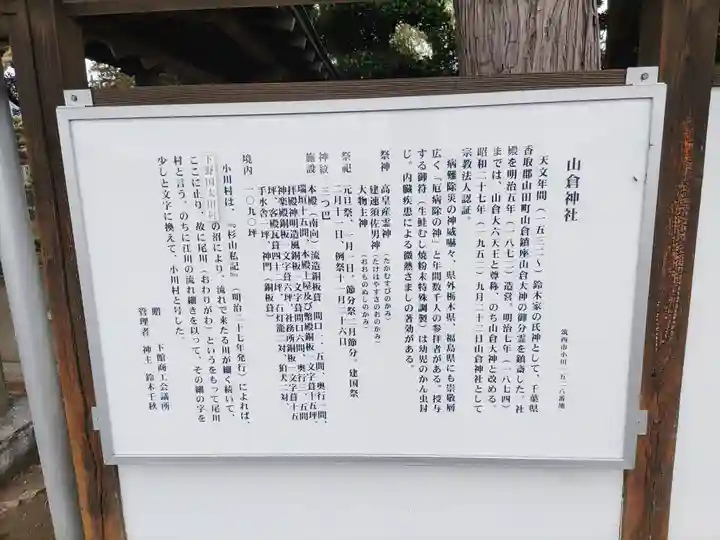 山倉神社
筑西市小川一五二六番地
天文年間(一五三二~)鈴木家の氏神として、千葉県
香取郡山田町山倉鎮座山倉大神の御分霊を鎮斎した。社
殿を明治五年(一八七二)造営。明治七年(一八七四)
までは、山倉大六天王と尊称、のち山倉大神と改める。
昭和二十七年(一九五二)九月二十三日山倉神社として
宗教法人認証。
病難除災の神威嚇々、県外栃木県、福島県にも崇敬層
広く『厄病除の神』と年間数千人の参拝者がある。授与
する御符(生鮭むし焼粉末特殊調製)は幼児のかん虫封
じ。内臓疾患による微熱さましの著効がある。
祭神 高皇産霊神(たかむすびのかみ)
建速須佐男神(たけはやすさのおのかみ)
大物主神(おおものぬしのかみ)
祭祀 元旦祭、一月一日。節分祭二月節分。建国祭
二月十一日、例祭十一月二十六日
神紋 三つ巴
施設 本殿(南向)流造銅板葺、間口一、五間、奥行一間、
瑞垣十五間、本殿上屋及び幣殿銅板一文字葺十五坪、
拝殿神明造風銅板一文字葺間口六間、奥行三、五間
神楽殿銅板一文字葺六坪、社務所銅板一文字葺十五
坪、客殿瓦葺四十二坪、石灯籠二対、狛犬一対、
手水舎一坪、神門(銅板葺)
境内 一〇九〇坪
小川村は、『杉山私記』(明治二十七年発行)によれば、
下野国大川村の沼により、流れて来たる川が細く続いて、
ここに止り、故に尾川(おわりがわ)というをもって尾川
村と言う。のちに江川の流れ細きを以って、その細の字を
少しと文字に換えて、小川村と号した。
贈 下館商工会議所
管理者 神主 鈴木千秋